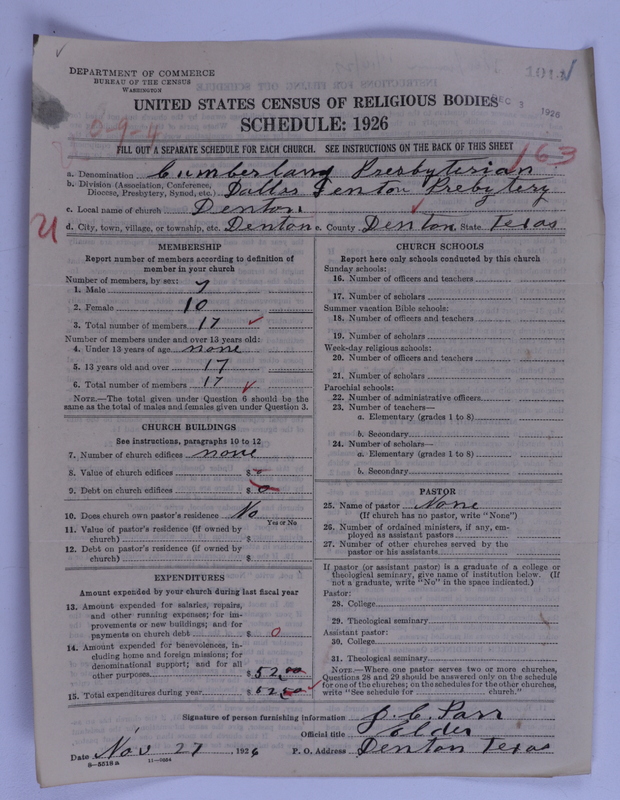 DEPARTMENT OF COMMERCE
BUREAU OF THE CENSUS
WASHINGTON
1011
DEC 3 1926
UNITED STATES CENSUS OF RELIGIOUS BODIES
SCHEDULE: 1926
0-9-4
FILL OUT A SEPARATE SCHEDULE FOR EACH CHURCH. SEE INSTRUCTIONS ON THE BACK OF THIS SHEET
163
a. Denomination Cumberland Presbyterian
b. Division (Association, Conference, Diocese, Presbytery, Synod, etc.) Dallas Denton Presbytery
c. Local name of church Denton
U
d. City, town, village, or township, etc. Denton e. County Denton State Texas
MEMBERSHIP
Report number of members according to definition of
member in your church
Number of members, by sex:
1. Male 7
2. Female 10
3. Total number of members 17
Number of members under and over 13 years old:
4. Under 13 years of age none
5. 13 years old and over 17
6. Total number of members 17
NOTE.—The total given under Question 6 should be the
same as the total of males and females given under Question 3.
CHURCH BUILDINGS
See instructions, paragraphs 10 to 12
7. Number of church edifices none
8. Value of church edifices $ 0
9. Debt on church edifices $ 0
10. Does church own pastor's residence No
Yes or No
11. Value of pastor's residence (if owned by
church) $
12. Debt on pastor's residence (if owned by
church) $
EXPENDITURES
Amount expended by your church during last fiscal year
13. Amount expended for salaries, repairs,
and other running expenses; for im-
provements or new buildings; and for
payments on church debt $ 0
14. Amount expended for benevolences, in-
cluding home and foreign missions; for
denominational support; and for all
other purposes $ 52.00
15. Total expenditures during year $ 52.00
CHURCH SCHOOLS
Report here only schools conducted by this church
Sunday schools:
16. Number of officers and teachers
17. Number of scholars
Summer vacation Bible schools:
18. Number of officers and teachers
19. Number of scholars
Week-day religious schools:
20. Number of officers and teachers
21. Number of scholars
Parochial schools:
22. Number of administrative officers
23. Number of teachers—
a. Elementary (grades 1 to 8)
b. Secondary
24. Number of scholars—
a. Elementary (grades 1 to 8)
b. Secondary
PASTOR
25. Name of pastor None
(If church has no pastor, write "None")
26. Number of ordained ministers, if any, em-
ployed as assistant pastors
27. Number of other churches served by the
pastor or his assistants
If pastor (or assistant pastor) is a graduate of a college or
theological seminary, give name of institution below. (If
not a graduate, write "No" in the space indicated.)
Pastor:
28. College
29. Theological seminary
Assistant pastor:
30. College
31. Theological seminary
NOTE.—Where one pastor serves two or more churches,
Questions 28 and 29 should be answered only on the schedule
for one of the churches; on the schedules for the other churches,
write "See schedule for church."
Signature of person furnishing information J. C. Parr
Official title Elder
Date Nov 27, 1926 P. O. Address Denton Texas
8-5518 a 11-9884